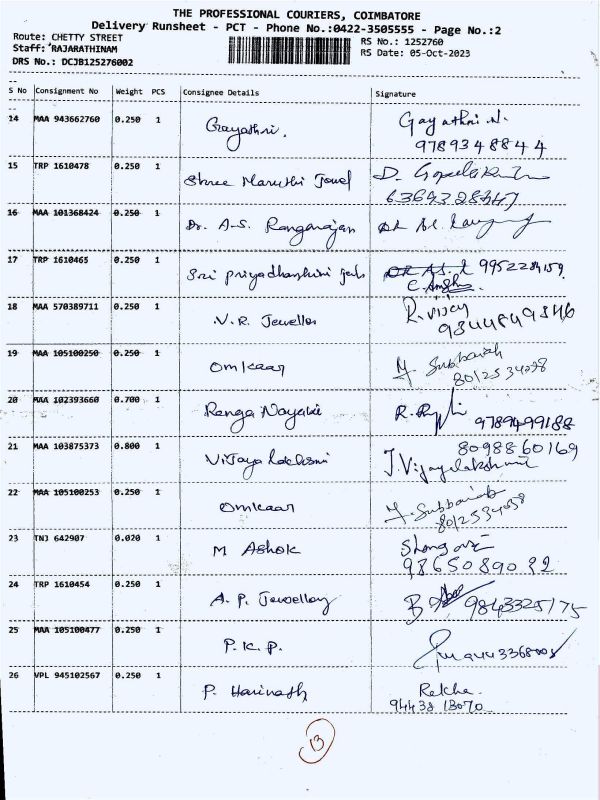 THE PROFESSIONAL COURIERS, COIMBATORE
Delivery Runsheet - PCT - Phone No.:0422-3505555 - Page No.:2
Route: CHETTY STREET RS No.: 1252760
Staff: RAJARATHINAM RS Date: 05-Oct-2023
DRS No.: DCJB125276002
S No Consignment No Weight PCS Consignee Details Signature
14 MAA 943662760 0.250 1 Gayathri. Gayathri.N.
9789348844
15 TRP 1610478 0.250 1 Shree Maruthi Jewel D.
16 MAA 101368424 0.250 1 Dr. A-S. Rangarajan
17 TRP 1610465 0.250 1 Sri Priyadharshini 
18 MAA 570389711 0.250 1 V.R. Jewellos R.vijay
9844849346
19 MAA 105100250 0.250 1 Omkaar Subbaiah
20 MAA 102393660 0.700 1 Ranga Nayaki
9789499188
21 MAA 103875373 0.800 1 Vijaya Lakshmi 8098860169
J.Vijayalakshmi
22 MAA 105100253 0.250 1 Omkaar Subbaiah
23 TNJ 642907 0.020 1 M Ashok
9865089032
24 TRP 1610454 0.250 1 A.P. Jewellery 9843325175
25 MAA 105100477 0.250 1 P.K.P.
26 VPL 945102567 0.250 1 P. Harinath Rekha.
94438 13070
13